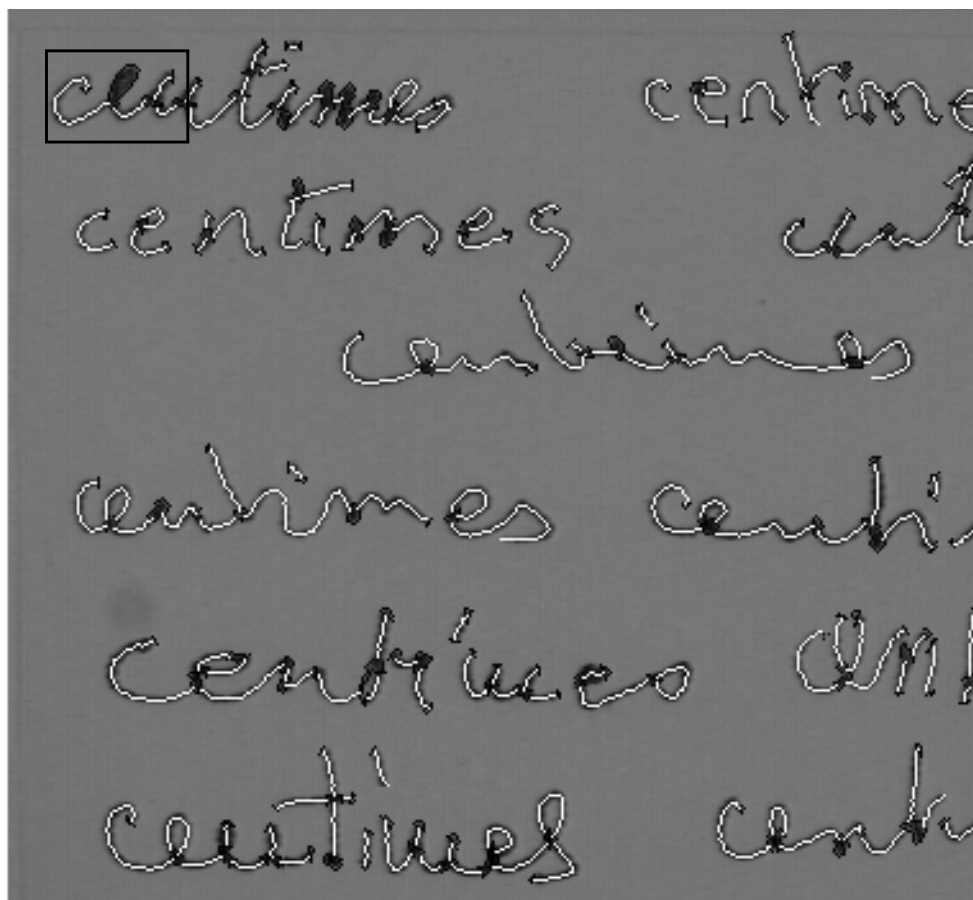 centimes centime
centimes cent
centimes
centimes centi
centimes cent
centimes centi